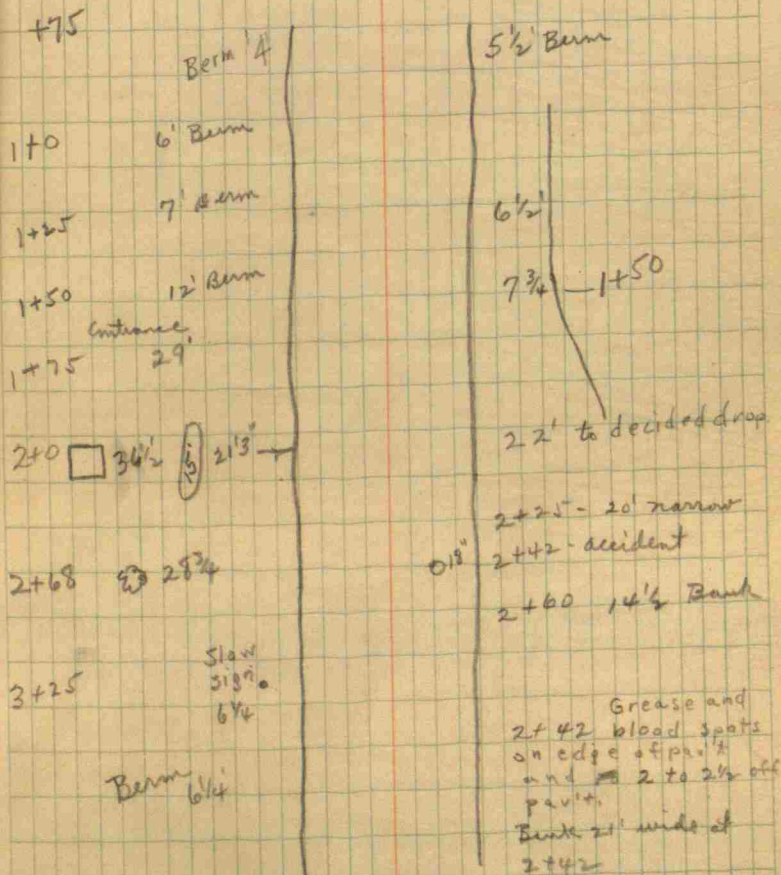 +75
Berm 4'
1+0 6' Berm
1+25 7' Berm
1+50 12' Berm
Entrance
1+75 29'
2+0 36½ 5' 21'3"
2+68 28¾
3+25 Slow
sign.
6¼
Berm 6¼'
5½' Berm
6½'
7¾ — 1+50
22' to decided drop
2+25 - 20' narrow
18" 2+42 - accident
2+60 14½ Bank
Grease and
2+42 blood spots
on edge of pav't
and 2 to 2½ off
pav't.
Bank 21' wide at
2+42